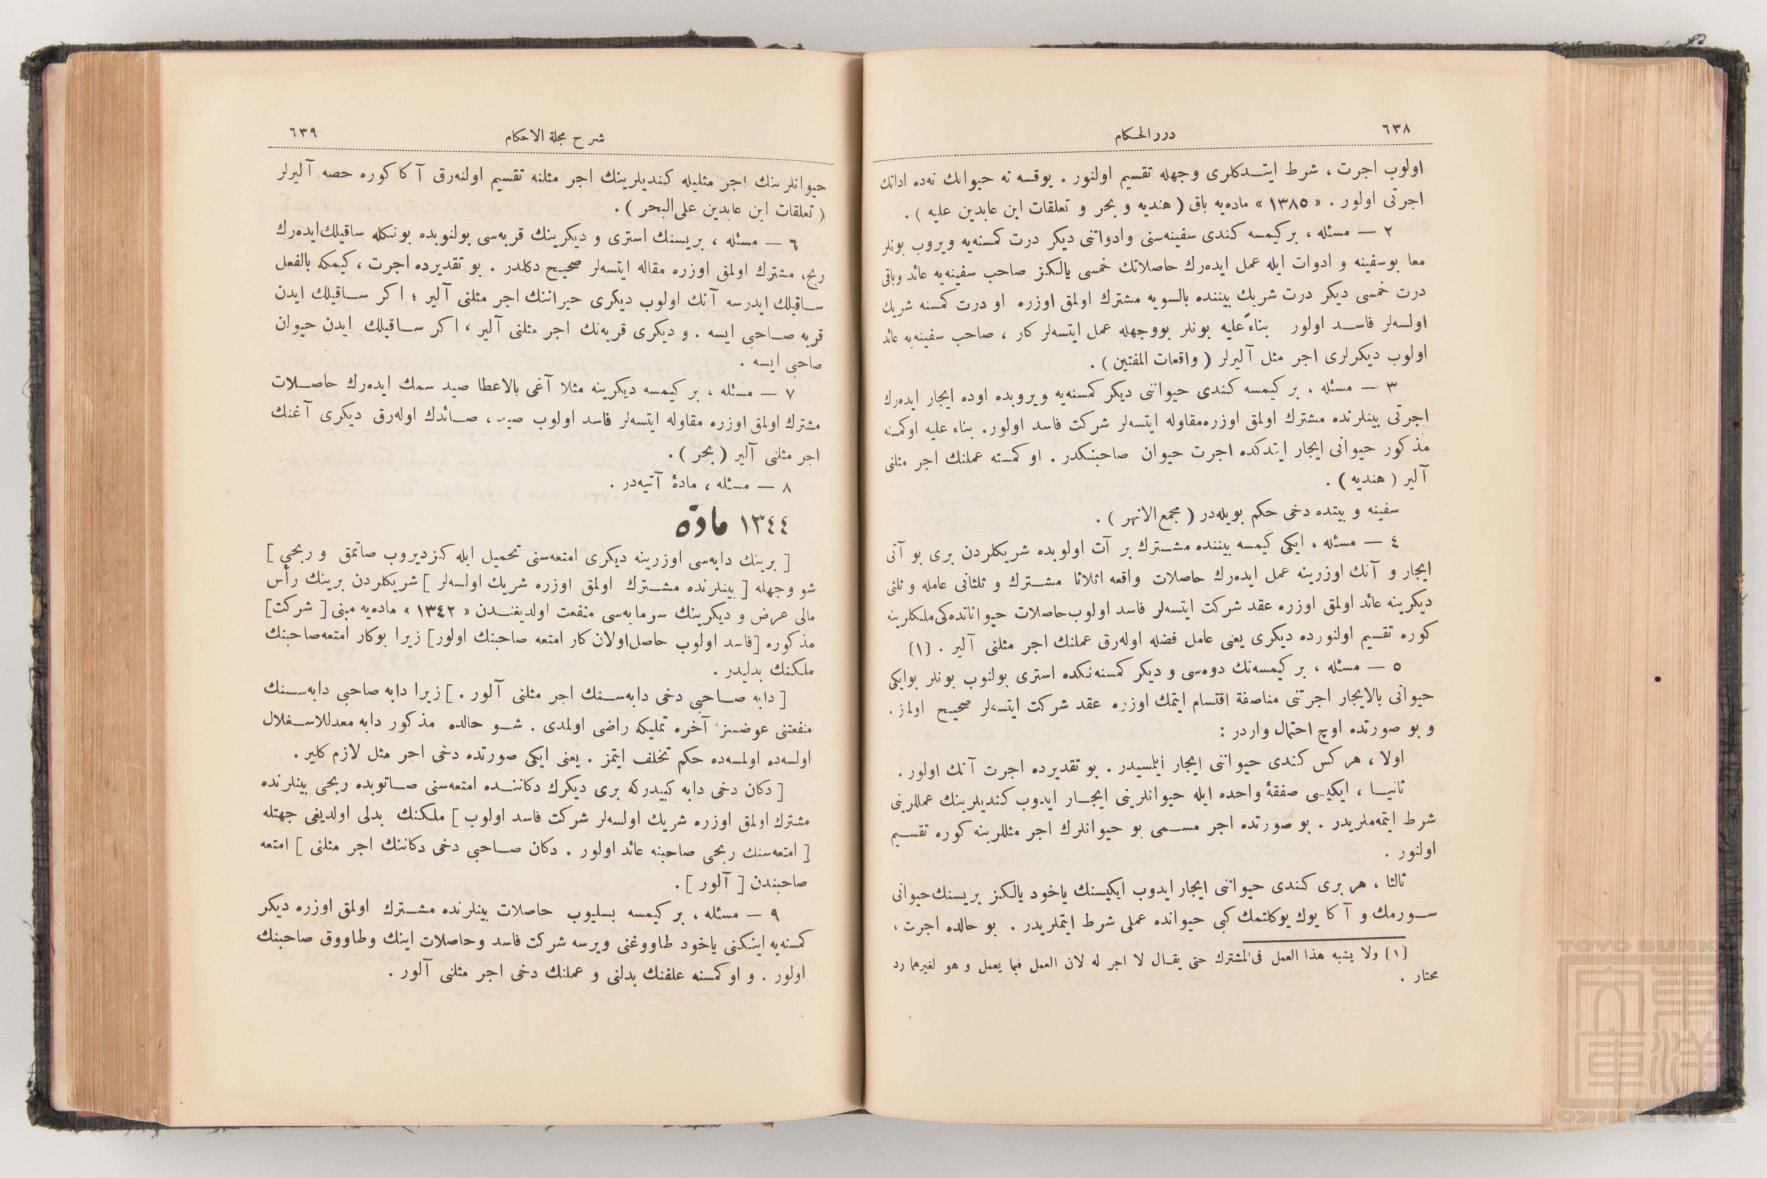 ٦٣٨
درر الحكام
اولوب اجرت ، شرط ايتـدكلرى وجهله تقسيم اولنور . يوقسه نه حيوانك نه‌ده اداتك
اجرتى اولور . « ١٣٨٥ » ماده‌يه باق ( هنديه و بحر و تعلقات ابن عابدين عليه ) .
٢ — مسئله ، بر كيمسه كندى سفينه‌سنى وادواتنى ديكر درت كمسنه‌يه ويروب بونلر
معا بوسفينه و ادوات ايله عمل ايده‌رك حاصلاتك خمسى يالكز صاحب سفينه‌يه عائد وباقى
درت خمسى ديكر درت شريك بيننده بالسويه مشترك اولمق اوزره او درت كمسنه شريك
اولسه‌لر فاسـد اولور بناءً عليه بونلر بووجهله عمل ايتسه‌لر كار ، صاحب سفينه‌يه عائد
اولوب ديكرلرى اجر مثل آليرلر ( واقعات المفتين ) .
٣ — مسئله ، بر كيمسه كندى حيواننى ديكر كمسنه‌يه ويروبده اوده ايجار ايده‌رك
اجرتى بينلرنده مشترك اولمق اوزره‌مقاوله ايتسه‌لر شركت فاسد اولور . بناء عليه اوكمسنه
مذكور حيوانى ايجار ايتدكده اجرت حيوان صاحبنكدر . او كمسنه عملنك اجر مثلنى
آلير ( هنديه ) .
سفينه و بيتده دخى حكم بويله‌در ( مجمع الانهر ) .
٤ — مسئله ، ايكى كيمسه بيننده مشـترك بر آت اولوبده شريكلردن برى بو آتى
ايجار و آنك اوزرينه عمل ايده‌رك حاصلات واقعه اثلاثا مشـترك و ثلثانى عامله و ثلثى
ديكرينه عائد اولمق اوزره عقد شركت ايتسه‌لر فاسد اولوب حاصلات حيواناتده‌كى ملكلرينه
كوره تقسيم اولنورده ديكرى يعنى عامل فضله اوله‌رق عملنك اجر مثلنى آلير . [١]
٥ — مسئله ، بر كيمسه‌نك دوه‌سى و ديكر كمسنه‌نكده استرى بولنوب بونلر بوايكى
حيوانى بالايجار اجرتنى مناصفة اقتسام ايتمك اوزره عقد شركت ايتسه‌لر صحيـح اولماز .
و بو صورتده اوچ احتمال واردر :
اولا ، هر كس كندى حيواننى ايجار ايتمسيدر . بو تقديرده اجرت آنك اولور .
ثانيـا ، ايكيسى صفقهٔ واحده ايله حيوانلرينى ايجـار ايدوب كنديلرينك عمللرينى
شرط ايتمه‌ملريدر . بو صورتده اجر مسـمى بو حيوانلرك اجر مثللرينه كوره تقسـيم
اولنور .
ثالثا ، هر برى كندى حيواننى ايجار ايدوب ايكيسنك ياخود يالكز بريسنك حيوانى
سـورمك و آكا يوك يوكلتمك كبى حيوانده عملى شرط ايتملريدر . بو حالده اجرت ،
[١] ولا يشبه هذا العمل فى المشترك حتى يقـال لا اجر له لان العمل فيما يعمل و هو لغيرهما رد
محتار .
٦٣٩
شرح مجلة الاحكام
حيوانلرينك اجر مثليله كنديلرينك اجر مثلنه تقسيم اولنه‌رق آكا كوره حصه آليرلر
( تعلقات ابن عابدين على البحر ) .
٦ — مسئله ، بريسنك استرى و ديكرينك قربه‌سى بولنوبده بونكله ساقيلك ايده‌رك
ربح، مشترك اولمق اوزره مقاله ايتسه‌لر صحيح دكلدر . بو تقديرده اجرت ، كيمكه بالفعل
سـاقيلك ايدرسه آنك اولوب ديكرى حيواننك اجر مثلنى آلير ؛ اكر سـاقيلك ايدن
قربه صـاحبى ايسه . و ديكرى قربه‌نك اجر مثلنى آلير ، اكر سـاقيلك ايدن حيوان
صاحبى ايسه .
٧ — مسئله ، بر كيمسه ديكرينه مثلا آغى بالاعطا صيد سمك ايده‌رك حاصـلات
مشترك اولمق اوزره مقاوله ايتسه‌لر فاسد اولوب صيد ، صـائدك اوله‌رق ديكرى آغنك
اجر مثلنى آلير ( بحر ) .
٨ — مسئله ، مادهٔ آتيه‌در .
١٣٤٤ مادّه
[ برينك دابه‌سى اوزرينه ديكرى امتعه‌سنى تحميل ايله كزديروب صاتمق و ربحى ]
شو وجهله [ بينلرنده مشـترك اولمق اوزره شريك اولسه‌لر ] شريكلردن برينك رأس
مالى عرض و ديكرينك سرمايه‌سى منفعت اولديغنـدن « ١٣٤٢ » ماده‌يه مبنى [ شركت ]
مذكوره [ فاسد اولوب حاصل اولان كار امتعه صاحبنك اولور ] زيرا بوكار امتعه صاحبنك
ملكنك بدليدر .
[ دابه صـاحبى دخى دابه‌سـنك اجر مثلنى آلور . ] زيرا دابه صاحبى دابه‌سـنك
منفعتنى عوضسز آخره تمليكه راضى اولمدى . شـو حالده مذكور دابه معدللاسـغلال
اولسه‌ده اولمسه‌ده حكم تخلف ايتمز . يعنى ايكى صورتده دخى اجر مثل لازم كلير .
[ دكان دخى دابه كبيدركه برى ديكرك دكاننـده امتعه‌سنى صـاتوبده ربحى بينلرنده
مشترك اولمق اوزره شريك اولسه‌لر شركت فاسد اولوب ] ملكنك بدلى اولديغى جهتله
[ امتعه‌سنك ربحى صاحبنه عائد اولور . دكان صـاحبى دخى دكاننك اجر مثلنى ] امتعه
صاحبندن [ آلور ] .
٩ — مسئله ، بر كيمسه بسليوب حاصلات بينلرنده مشـترك اولمق اوزره ديكر
كمسنه‌يه اينكنى ياخود طاووغنى ويرسه شركت فاسد وحاصلات اينك وطاووق صاحبنك
اولور . و اوكمسنه علفنك بدلنى و عملنك دخى اجر مثلنى آلور .
TOYO BUNKO
東洋文庫